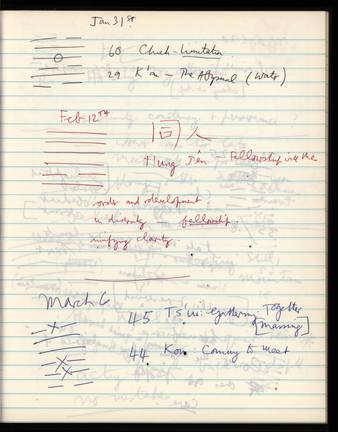 Jan 31st
60 Chieh - Limitation
29 K'an - The Abysmal (Water)
Feb 12th
同人
T'ung Jên - Fellowship with Men
order and development
in diversity - fellowship
unifying clarity.
March 6
45 Ts'ui. Gathering Together
[Massing]
44 Kou. Coming to meet